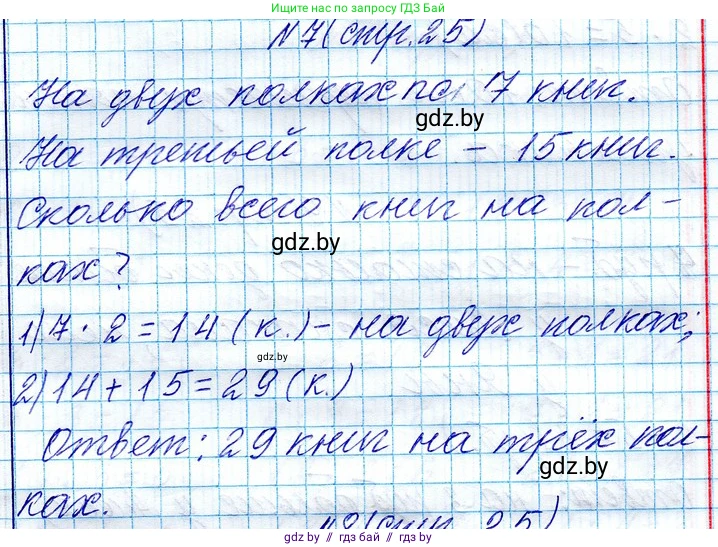 Ищите нас по запросу ГДЗ Бай
№7 (стр. 25)
На двух полках по 7 книг.
gdz.by
На третьей полке – 15 книг.
Сколько всего книг на пол-
gdz.by
ках?
1) 7 · 2 = 14 (к.) – на двух полках;
gdz.by
2) 14 + 15 = 29 (к.)
Ответ: 29 книг на трёх пол-
gdz.by
ках.
(стр. 25)
gdz.by // гдз бай // gdz.by // гдз бай // gdz.by